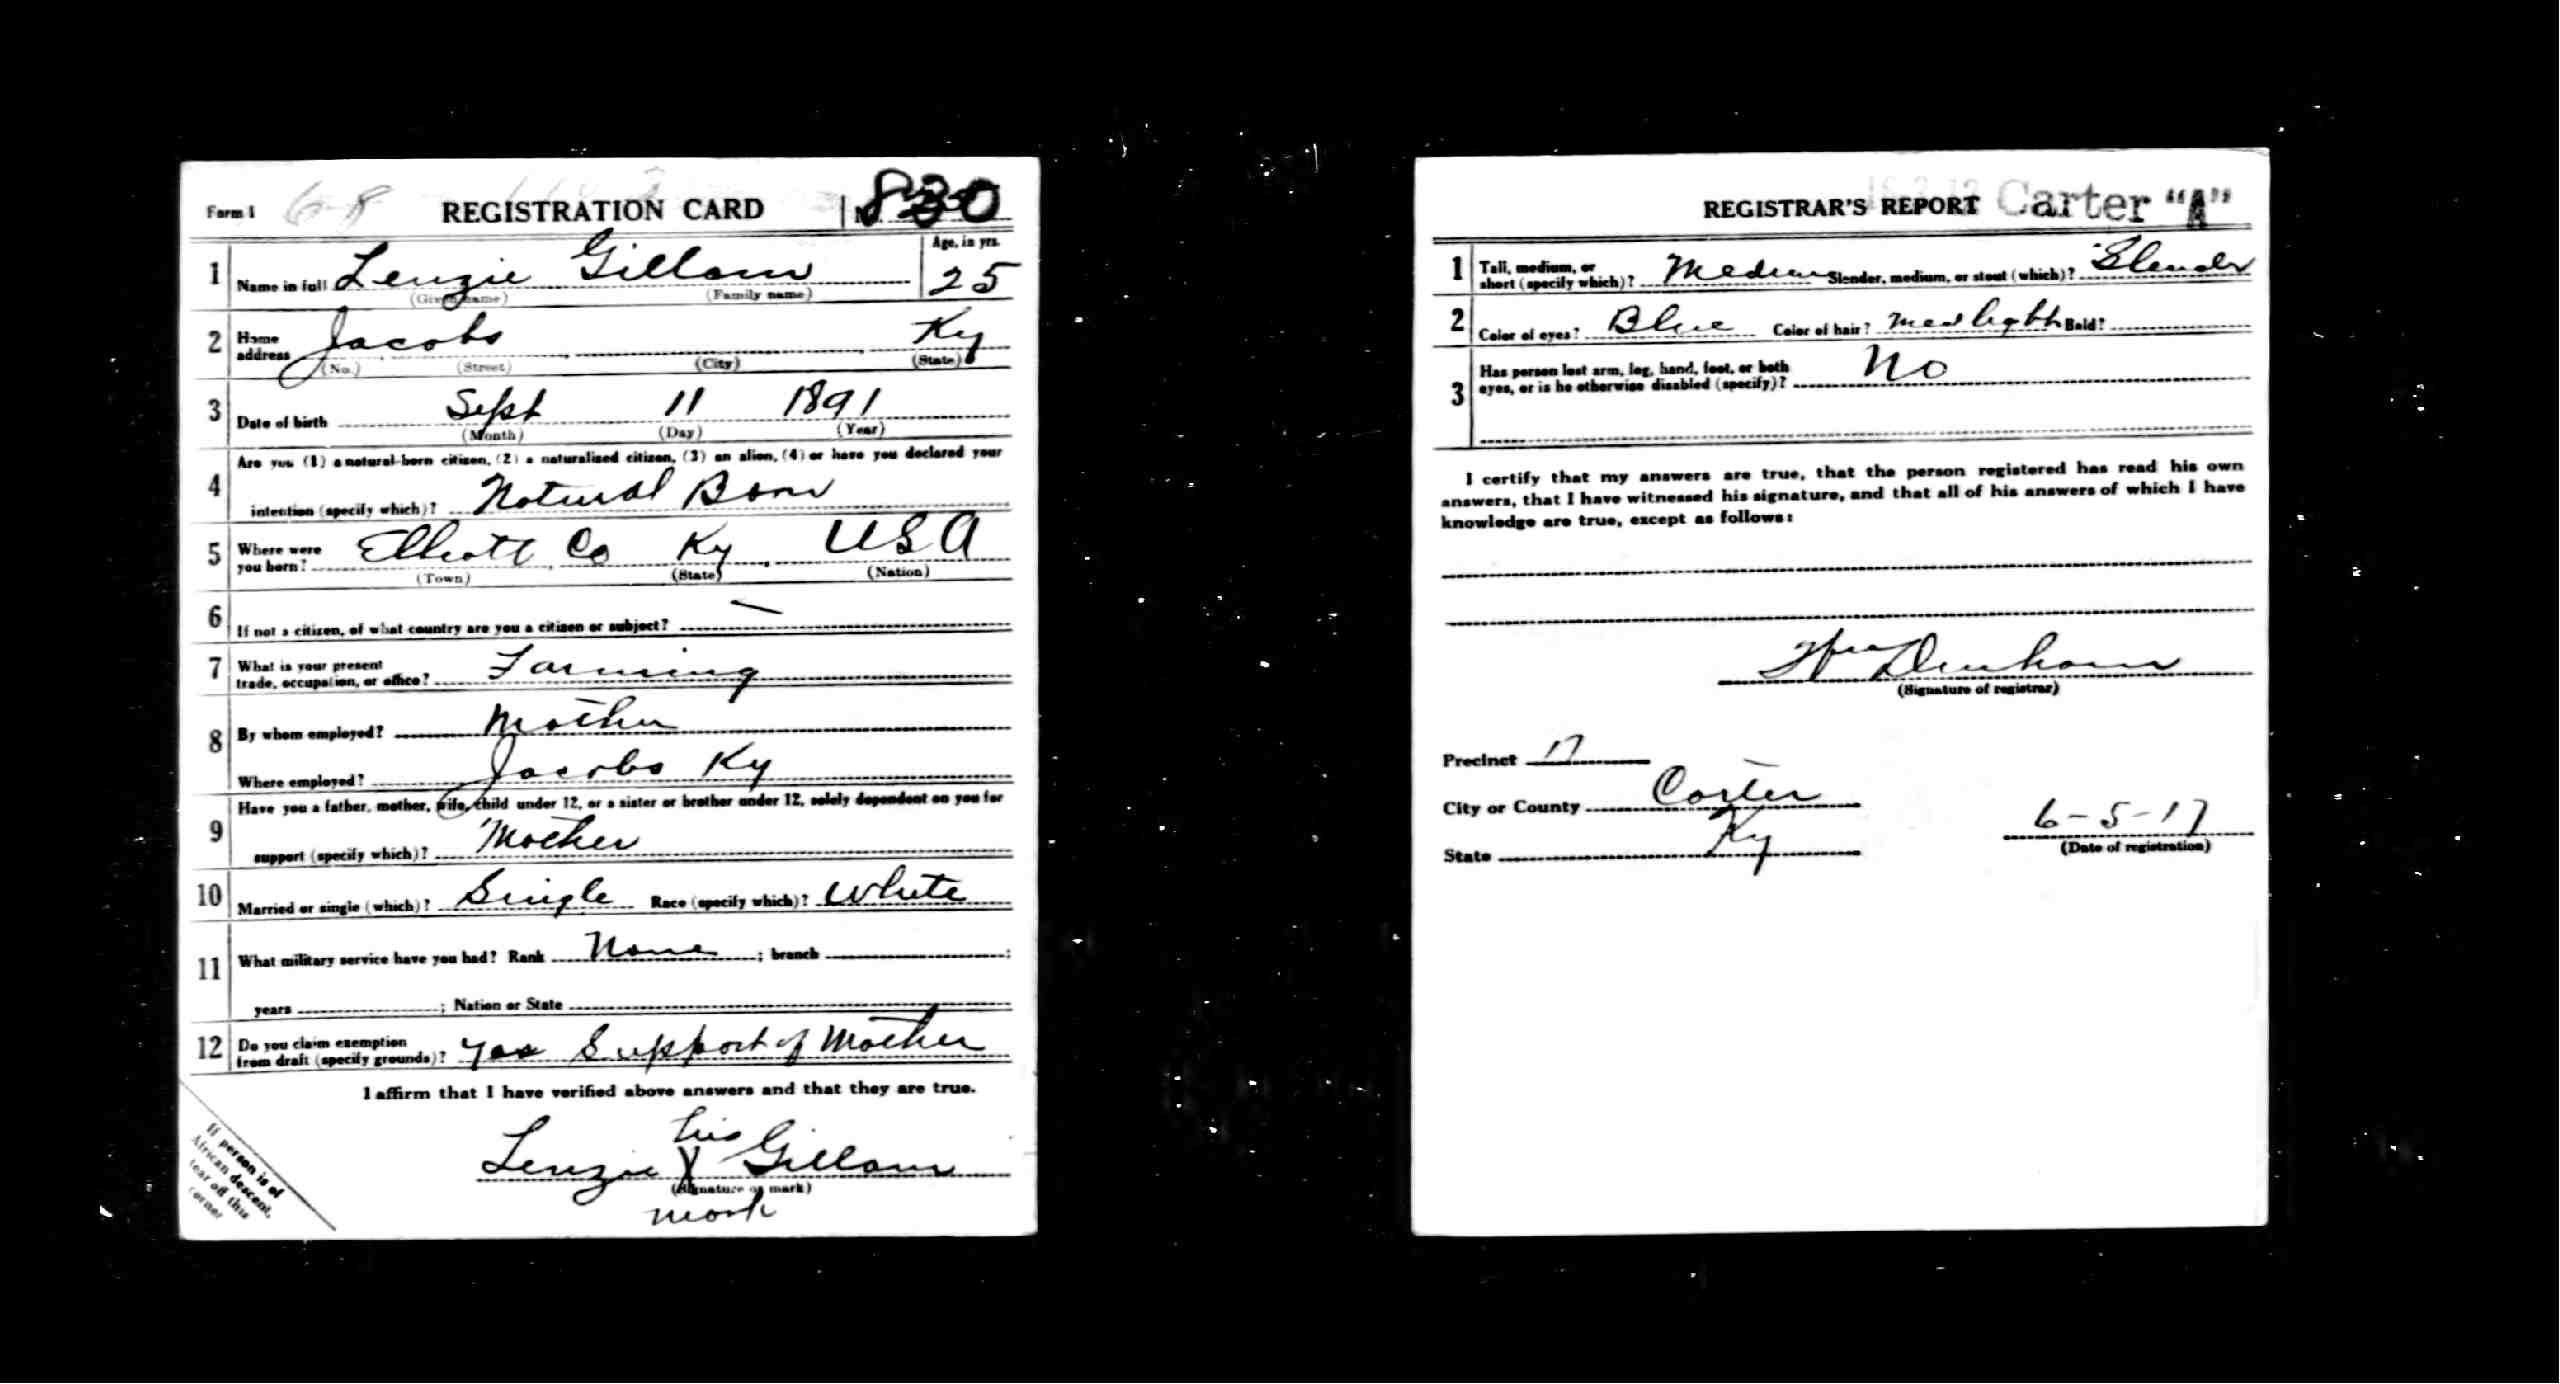 Form 1 6-8 REGISTRATION CARD No. 830
1 Name in full Lenzie Gillam Age, in yrs. 25
(Given name) (Family name)
2 Home address Jacobs Ky
(No.) (Street) (City) (State)
3 Date of birth Sept 11 1891
(Month) (Day) (Year)
Are you (1) a natural-born citizen, (2) a naturalized citizen, (3) an alien, (4) or have you declared your
4 intention (specify which)? Natural Born
5 Where were you born? Elliott Co Ky USA
(Town) (State) (Nation)
6 If not a citizen, of what country are you a citizen or subject? —
7 What is your present trade, occupation, or office? Farming
8 By whom employed? Mother
Where employed? Jacobs Ky
Have you a father, mother, wife, child under 12, or a sister or brother under 12, solely dependent on you for
9 support (specify which)? Mother
10 Married or single (which)? Single Race (specify which)? White
11 What military service have you had? Rank None ; branch ;
years ; Nation or State
12 Do you claim exemption from draft (specify grounds)? Yes Support of Mother
I affirm that I have verified above answers and that they are true.
his
Lenzie X Gillam
(Signature or mark)
mark
If person is of
African descent,
tear off this
corner
REGISTRAR'S REPORT Carter "A"
1 Tall, medium, or short (specify which)? Medium Slender, medium, or stout (which)? Slender
2 Color of eyes? Blue Color of hair? Med light Bald?
3 Has person lost arm, leg, hand, foot, or both
eyes, or is he otherwise disabled (specify)? No
I certify that my answers are true, that the person registered has read his own
answers, that I have witnessed his signature, and that all of his answers of which I have
knowledge are true, except as follows:
Wm Denham
(Signature of registrar)
Precinct 17
City or County Carter
State Ky
6-5-17
(Date of registration)